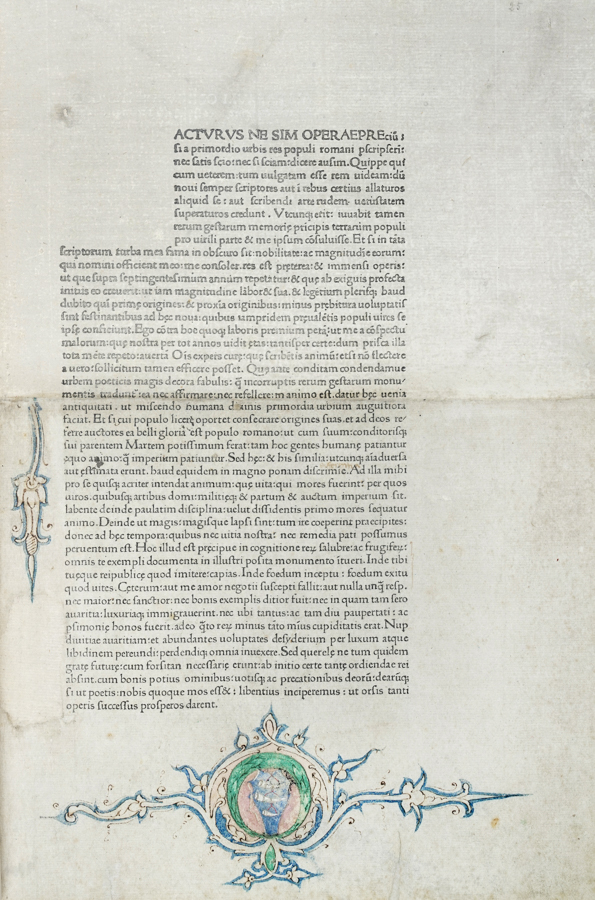 ACTVRVS NE SIM OPERAEPREciũ;
si a primordio urbis res populi romani pscripserī:
nec satis scio:nec si sciam:dicere ausim.Quippe qui
cum ueterem:tum uulgatam esse rem uideam:dũ
noui semper scriptores aut ī rebus certius allaturos
aliquid se: aut scribendi arte rudem uetustatem
superaturos credunt. Vtcunq; erit: iuuabit tamen
rerum gestarum memorię prīcipis terrarum populi
pro uirili parte & me ipsum cõsuluisse.Et si in tãta
scriptorum turba mea fama in obscuro sit:nobilitate:ac magnitudīe eorum:
qui nomini officient meo:me consoler.res est pręterea:& immensi operis:
ut quę supra septingentesimum annum repetatur:& quę ab exiguis profecta
initiis eo creuerit:ut iam magnitudine laboret sua.& legētium plerisq; haud
dubito quī primę origines:& proxīa originibus:minus prębitura uoluptatis
sint festinantibus ad hęc noua:quibus iampridem pręualētis populi uires se
ipsę conficiunt.Ego cõtra hoc quoq; laboris premium petã:ut me a cõspectu
malorum:quę nostra per tot annos uidit ętas:tantisper certe:dum prisca illa
tota mēte repeto:auertã Oīs expers curę:quę scribētis animũ:etsi nõ flectere
a uero:sollicitum tamen efficere posset. Quę ante conditam condendamue
urbem poeticis magis decora fabulis: q̃ incorruptis rerum gestarum monu/
mentis traduntur:ea nec affirmare:nec refellere:in animo est.datur hęc uenia
antiquitati. ut miscendo humana diuinis primordia urbium augustiora
faciat. Et si cui populo licerę oportet consecrare origines suas.et ad deos re/
ferre auctores:ea belli gloria est populo romano:ut cum suum:conditorisq;
sui parentem Martem potissimum ferat:tam hoc gentes humanę patiantur
ęquo animo:q̃ imperium patiuntur.Sed hęc:& his similia:utcunq; aīaduersa
aut ęstimata erunt. haud equidem in magno ponam discrimīe.Ad illa mihi
pro se quisq; acriter intendat animum:quę uita:qui mores fuerint: per quos
uiros.quibusq; artibus domi:militięq; & partum & auctum imperium sit.
labente deinde paulatim disciplina:uelut dissidentis primo mores sequatur
animo.Deinde ut magis:magisque lapsi sint:tum ire coeperint pręcipites:
donec ad hęc tempora:quibus nec uitia nostra: nec remedia pati possumus
peruentum est.Hoc illud est pręcipue in cognitione reꝝ salubre:ac frugifeꝝ:
omnis te exempli documenta in illustri posita monumento ītueri.Inde tibi
tuęque reipublicę quod imitere:capias.Inde foedum inceptu: foedum exitu
quod uites.Cęterum:aut me amor negotii suscepti fallit:aut nulla unq̃ resp.
nec maior:nec sanctior:nec bonis exemplis ditior fuit:nec in quam tam sero
auaritia:luxuriaq; immigrauerint.nec ubi tantus:ac tam diu paupertati: ac
psimonię honos fuerit.adeo q̃to reꝝ minus tãto mīus cupiditatis erat.Nup
diuitiae auaritiam:et abundantes uoluptates desyderium per luxum atque
libidinem pereundi:perdendiq; omnia inuexere.Sed querelę ne tum quidem
gratę futurę:cum forsitan necessarię erunt:ab initio certe tantę ordiendae rei
absint.cum bonis potius ominibus:uotisq; ac precationibus deorũ:dearũq;
si ut poetis:nobis quoque mos ess& : libentius inciperemus: ut orsis tanti
operis successus prosperos darent.